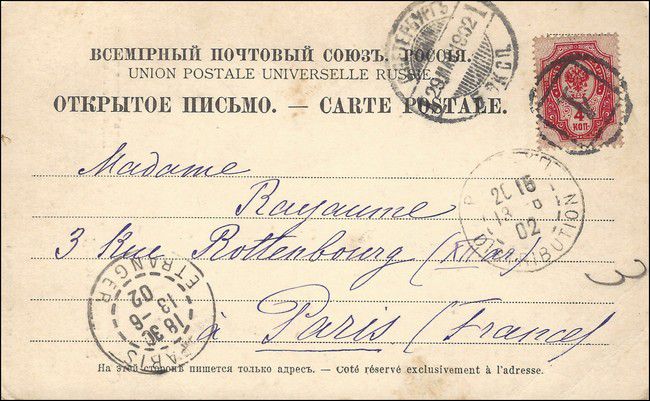 ВСЕМІРНЫЙ ПОЧТОВЫЙ СОЮЗЪ. РОССІЯ.
UNION POSTALE UNIVERSELLE RUSSIE.
ОТКРЫТОЕ ПИСЬМО. — CARTE POSTALE.
4
КОП.
Madame
Rayaume
3 Rue Rottenbourg (XII ar.)
à Paris (France)
PARIS ETRANGER
18 30
13 -6
02
DISTRIBUTION
20 15
13 6
02
3
На этой сторонѣ пишется только адресъ. — Coté réservé exclusivement à l'adresse.